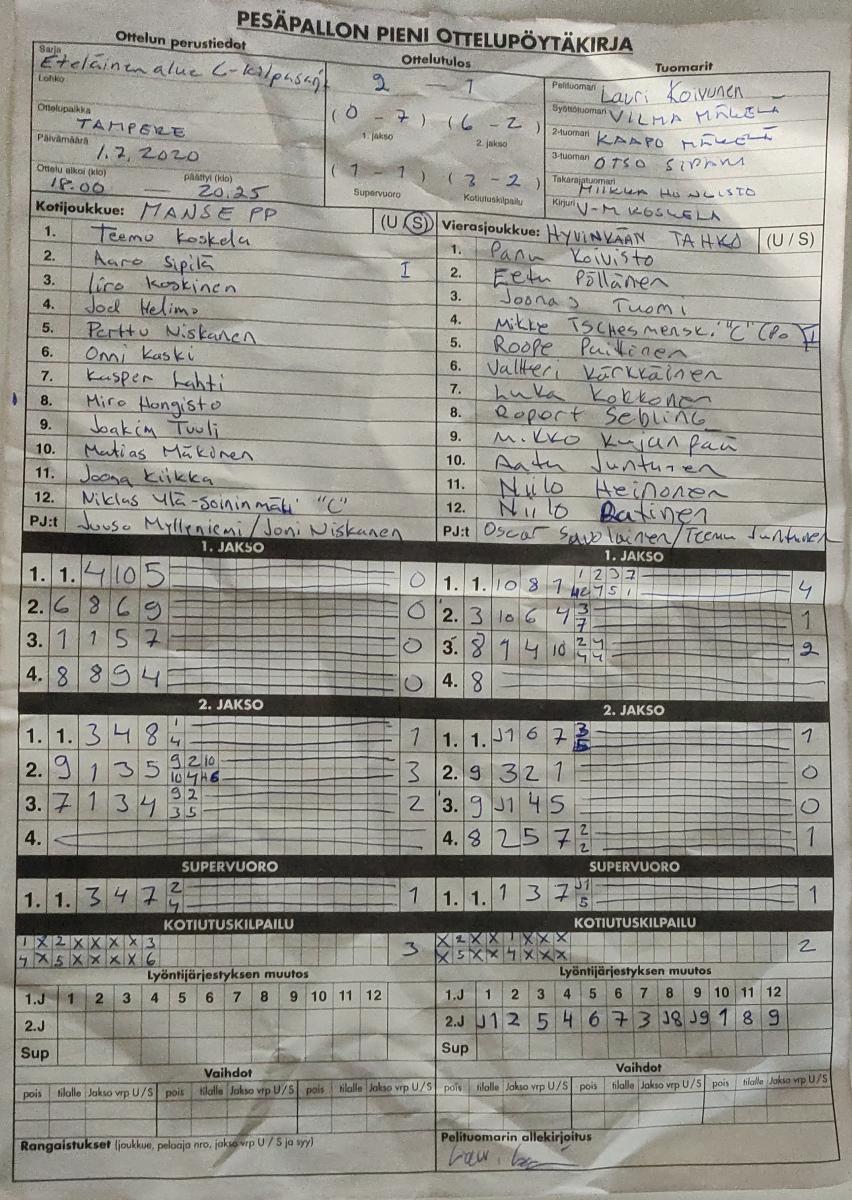 PESÄPALLON PIENI OTTELUPÖYTÄKIRJA
Ottelun perustiedot
Sarja
Eteläinen alue C-kilpasarj
Lohko
Ottelupaikka
TAMPERE
Päivämäärä
1.7.2020
Ottelu alkoi (klo) päättyi (klo)
18.00 — 20.25
Ottelutulos
2 - 1
(0 - 7) (6 - 2)
1. jakso 2. jakso
(1 - 1) (3 - 2)
Supervuoro Kotiutuskilpailu
Tuomarit
Pelituomari Lauri Koivunen
Syöttötuomari VILMA MÄKELÄ
2-tuomari KAAPO MÄKELÄ
3-tuomari OTSO
Takarajatuomari MIIKKA HONGISTO
Kirjuri V-M KOSKELA
Kotijoukkue: MANSE PP (U/S)
1. Teemu Koskela
2. Aaro Sipilä I
3. Iiro Koskinen
4. Joel Helimo
5. Perttu Niskanen
6. Onni Kaski
7. Kasper Lahti
8. Miro Hongisto
9. Joakim Tuuli
10. Matias Mäkinen
11. Joona Kiikka
12. Niklas Ylä-Soininmäki "C"
PJ:t Juuso Mylleniemi/Joni Niskanen
Vierasjoukkue: HYVINKÄÄN TAHKO (U/S)
1. Panu Koivisto
2. Eetu Pöllänen
3. Joonas Tuomi
4. Mikke "C"
5. Roope
6. Valtteri Kärkkäinen
7. Luka Kokkonen
8. Roport Sebling
9. Mikko Kujanpää
10. Aatu Junturen
11. Niilo Heinonen
12. Niilo Ratinen
PJ:t Oscar Savolainen/Teemu Junturen
1. JAKSO
1. 1. 4 10 5 0
2. 6 8 6 9 0
3. 1 1 5 7 0
4. 8 8 9 4 0
2. JAKSO
1. 1. 3 4 8 1 1
4
2. 9 1 3 5 9 2 10 3
10 4 6
3. 7 1 3 4 9 2 2
3 5
4.
SUPERVUORO
1. 1. 3 4 7 2 1
4
KOTIUTUSKILPAILU
1 X 2 X X X X 3 3
4 X 5 X X X X 6
1. JAKSO
1. 1. 10 8 1 1 2 3 7 4
5 1
2. 3 10 6 4 3 1
7
3. 8 9 4 10 2 4 2
4 4
4. 8
2. JAKSO
1. 1. J1 6 7 3 1
5
2. 9 3 2 1 0
3. 9 J1 4 5 0
4. 8 2 5 7 2 1
2
SUPERVUORO
1. 1. 1 3 7 J1 1
5
KOTIUTUSKILPAILU
X 2 X X 1 X X X 2
X 5 X X 4 X X X
Lyöntijärjestyksen muutos
1.J 1 2 3 4 5 6 7 8 9 10 11 12
2.J
Sup
Vaihdot
pois tilalle Jakso vrp U/S pois tilalle Jakso vrp U/S pois tilalle Jakso vrp U/S
Rangaistukset (joukkue, pelaaja nro, jakso vrp U / S ja syy)
Lyöntijärjestyksen muutos
1.J 1 2 3 4 5 6 7 8 9 10 11 12
2.J J1 2 5 4 6 7 3 J8 J9 1 8 9
Sup
Vaihdot
pois tilalle Jakso vrp U/S pois tilalle Jakso vrp U/S pois tilalle Jakso vrp U/S
Pelituomarin allekirjoitus